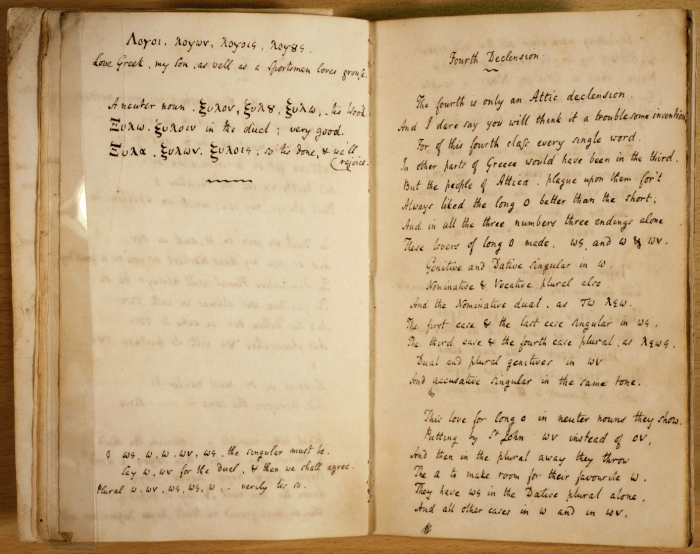 Λογοι. λογων, λογοις, λογȣς.
Love Greek, my son, as well as a Sportsman loves grouse.
A neuter noun. ξυλον, ξυλȣ, ξυλω, . 'tis Wood.
Ξυλω. ξυλοιν in the dual; very good.
Ξυλα. ξυλων. ξυλοις; so 'tis done, & we'll
(rejoice.
ως, ω, ω. ων, ως, the singular must be.
Say ω, ων for the dual, & then we shall agree.
Plural ω. ων, ως, ως, ω, .. verily 'tis so.
Fourth Declension.
The fourth is only an Attic declension.
And I dare say you will think it a troublesome invention,
For of this fourth class every single word.
In other parts of Greece would have been in the third.
But the people of Attica. plague upon them for't
Always liked the long O better than the short,
And in all the three numbers three endings alone
These lovers of long O made, ως, and ω & ων.
Genitive and Dative singular in ω.
Nominative & Vocative plural also
And the Nominative dual, as τω λεω.
The first case & the last case singular in ως,
The third case & the fourth case plural, as λεως.
Dual and plural genitives in ων
And accusative singular in the same tone.
This love for long o in neuter nouns they show.
Putting by St John. ων instead of ον,
And then in the plural away they throw
The α to make room for their favourite ω.
They have ως in the Dative plural alone,
And all other cases in ω and in ων.